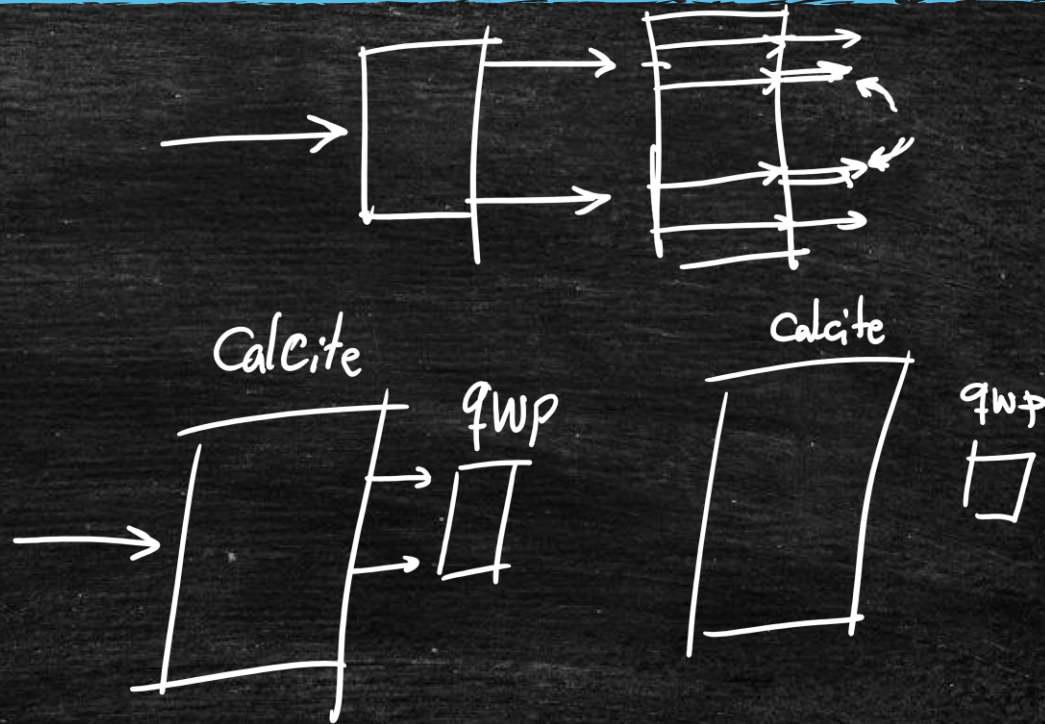 Calcite
qwp
Calcite
qwp